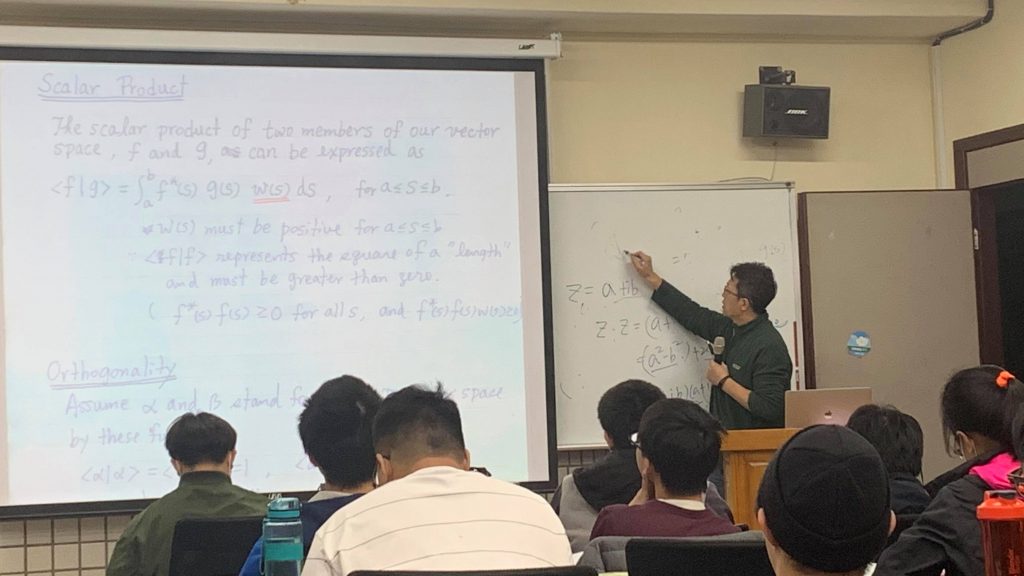 Scalar Product
The scalar product of two members of our vector
space, f and g, as can be expressed as
<f|g> = ∫ₐᵇ f*(s) g(s) w(s) ds, for a≤s≤b.
w(s) must be positive for a≤s≤b
<f|f> represents the square of a "length"
and must be greater than zero.
( f*(s) f(s) ≥ 0 for all s, and f*(s) f(s) w(s) ≥
Orthogonality
Assume α and β stand
space
by these
<α|α> =
=1,
BOSE
z = a+ib
z·z = (a+
(a²-b²)+